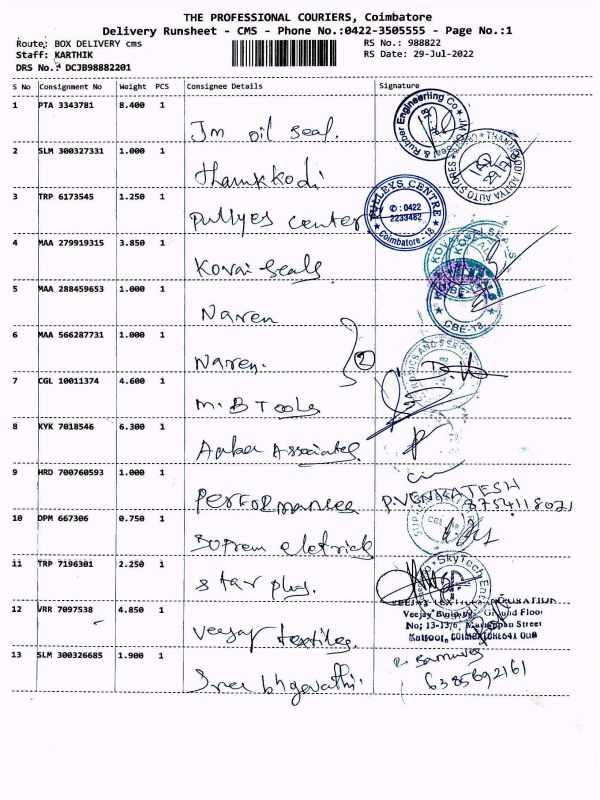 THE PROFESSIONAL COURIERS, Coimbatore
Delivery Runsheet - CMS - Phone No.:0422-3505555 - Page No.:1
Route: BOX DELIVERY cms RS No.: 988822
Staff: KARTHIK RS Date: 29-Jul-2022
DRS No.: DCJB98882201
S No Consignment No Weight PCS Consignee Details Signature
1 PTA 3343781 8.400 1 Jm oil seal.
& Rubber Engineering Co
2 SLM 300327331 1.000 1 thamkkodi
ADITYA AUTO STORES
3 TRP 6173545 1.250 1 Pullyes center
PULLEYS CENTRE
✆ : 0422
2233482
Coimbatore - 18
4 MAA 279919315 3.850 1 Kovai Seals
KOVAI SEALS
5 MAA 288459653 1.000 1 Naren
CBE-18.
6 MAA 566287731 1.000 1 Naren. 2
7 CGL 10011374 4.600 1 M.B Tools
8 KYK 7018546 6.300 1 Amber Associates
9 HRD 700760593 1.000 1 Performances P.VENKATESH
8754118021
10 DPM 667306 0.750 1 Suprem eletricls
11 TRP 7196301 2.250 1 star plus.
SkyTech
12 VRR 7097538 4.850 1 Veejay textiles
Veejay Building, Ground Floor
No; 13-13/6, Street
Kattoor, COIMBATORE-641 008
13 SLM 300326685 1.900 1 Sree bhgavathi.
6385692161